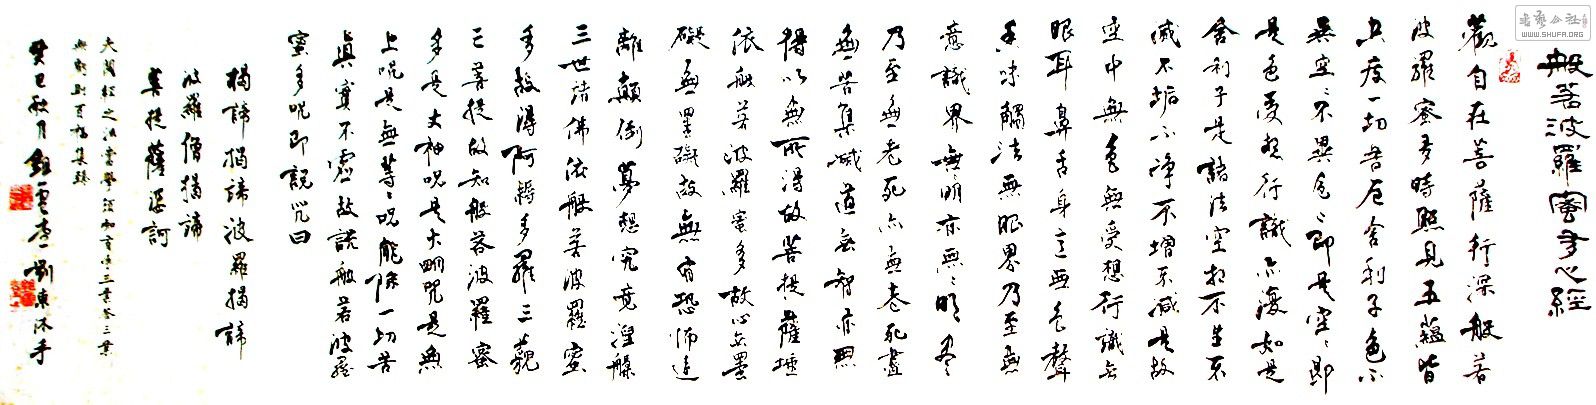 般若波羅蜜多心經
觀自在菩薩行深般若
波羅蜜多時照見五蘊皆
空度一切苦厄舍利子色不
異空〻不異色〻即是空〻即
是色受想行識亦復如是
舍利子是諸法空相不生不
滅不垢不淨不增不減是故
空中無色無受想行識無
眼耳鼻舌身意無色聲
香味觸法無眼界乃至無
意識界無〻明亦無〻明盡
乃至無老死亦無老死盡
無苦集滅道無智亦無
得以無所得故菩提薩埵
依般若波羅蜜多故心無罣
礙無罣礙故無有恐怖遠
離顛倒夢想究竟涅槃
三世諸佛依般若波羅蜜
多故得阿耨多羅三藐
三菩提故知般若波羅蜜
多是大神咒是大明咒是無
上咒是無等〻咒能除一切苦
真實不虛故說般若波羅
蜜多咒即說咒曰
揭諦揭諦波羅揭諦
波羅僧揭諦
菩提薩婆訶
癸巳秋月劉東沐手
书艺公社
WWW.SHUFA.ORG